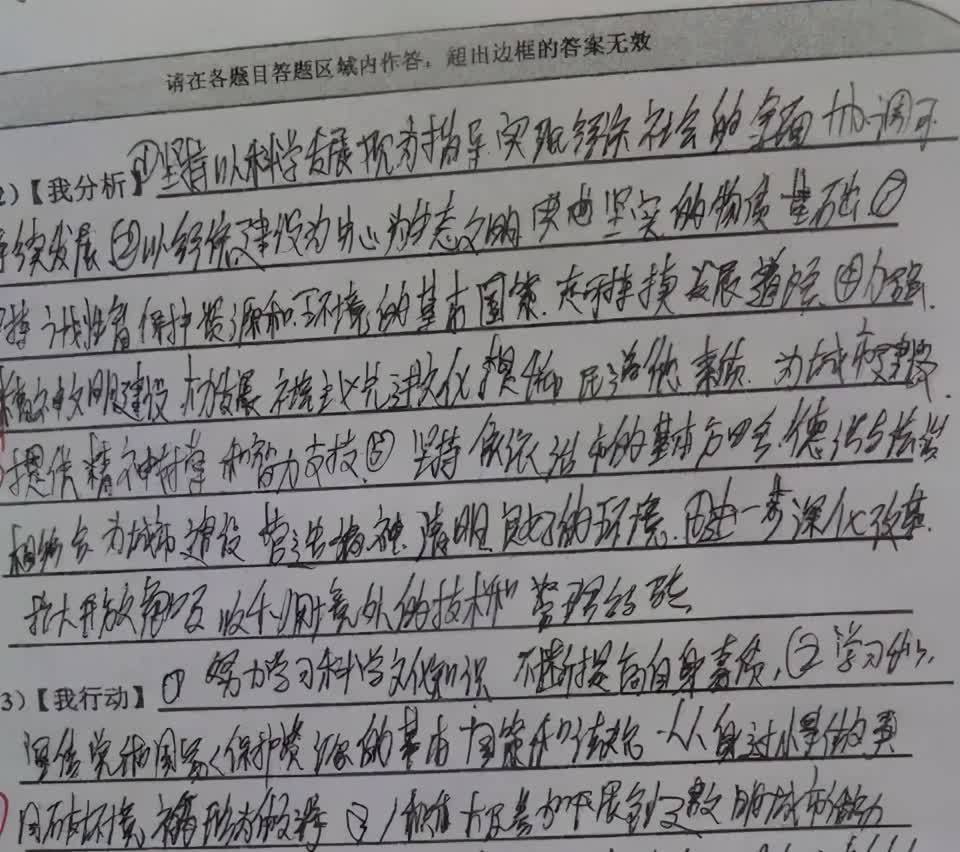 请在各题目答题区域内作答，超出边框的答案无效
2)【我分析】①坚持以科学发展观为指导.实现经济社会的全面协调可
持续发展②以经济建设为中心为生态文明奠定坚实的物质基础③
持计划生育保护资源和环境的基本国策.走可持续发展道路④加强
精神文明建设 大力发展社会主义先进文化提高 民道德素质.为城市建设
提供精神 和智力支持⑤坚持依法治 的基本方 德治与法治
相结合为城市建设营造 清明良好的环境.⑥进一步深化改革
扩大开放 吸收利用境外的技术和管理经验
3)【我行动】①努力学习科学文化知识 不断提高自身素质,②学习
宣传党和国家 保护资源的基本国策和 从自身 小事做
破坏环境 行为做 ③积极 城市